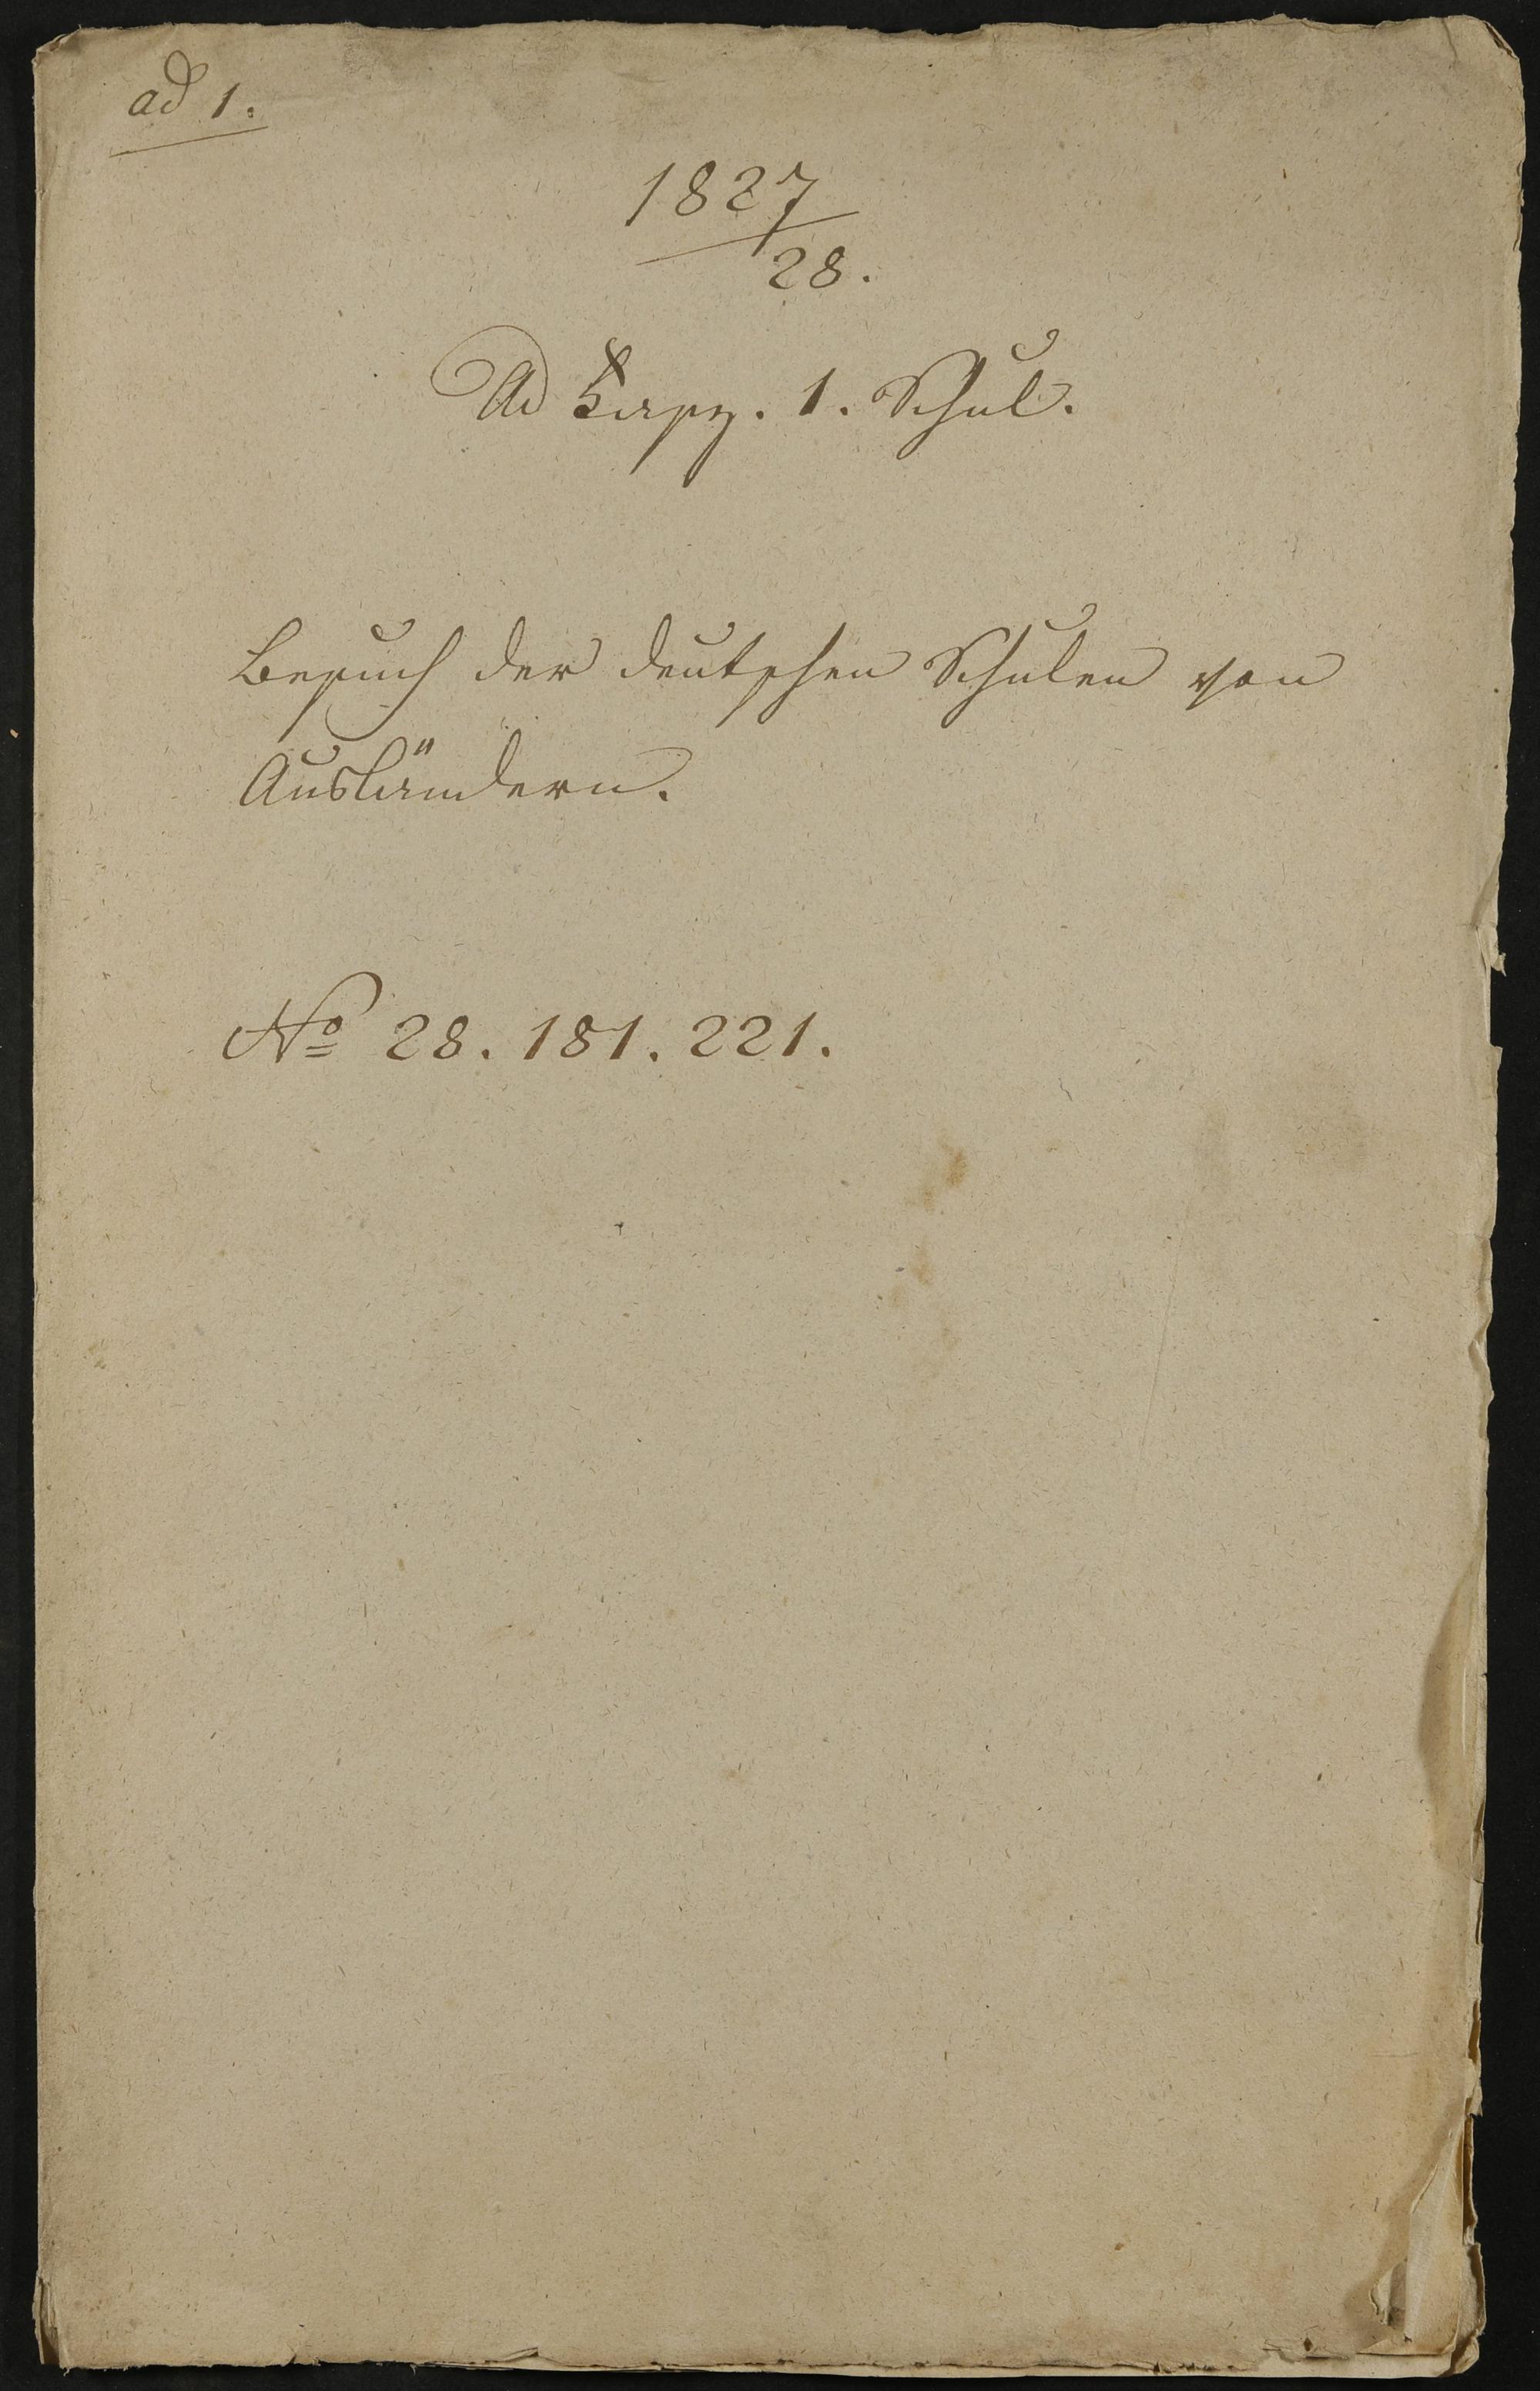 ad 1.
1827
28.
Ad Fasz. 1. Schul.
Besuch der deutschen Schulen von
Ausländern.
No 28. 181. 221.